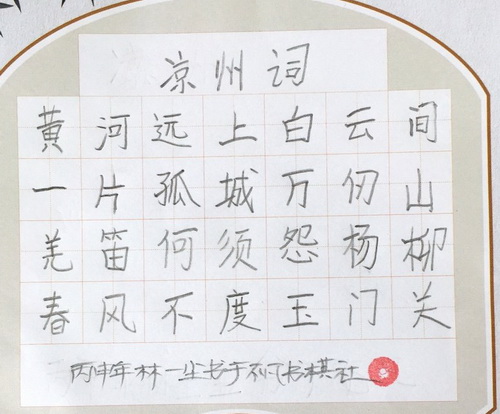 凉州词
黄河远上白云间
一片孤城万仞山
羌笛何须怨杨柳
春风不度玉门关
丙申年林一尘书于 书棋社